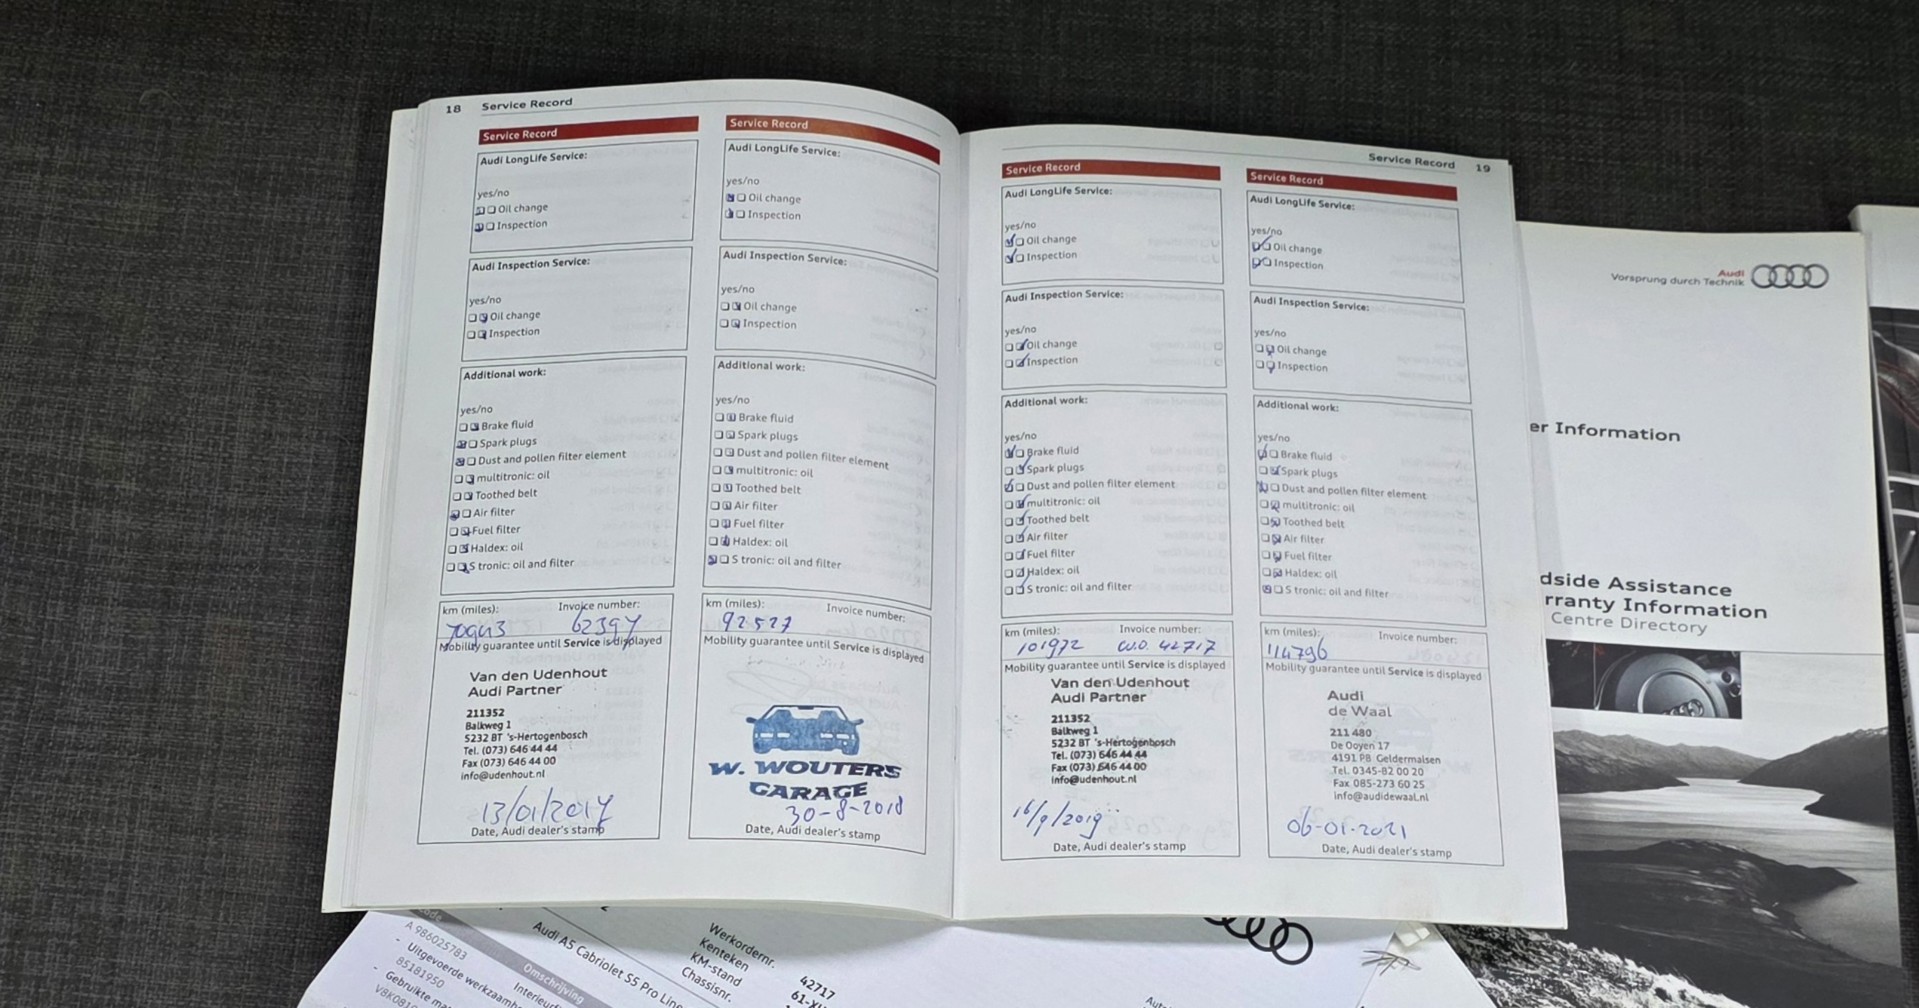 18 Service Record
Service Record
Audi LongLife Service:
yes/no
Oil change
Inspection
Audi Inspection Service:
yes/no
Oil change
Inspection
Additional work:
yes/no
Brake fluid
Spark plugs
Dust and pollen filter element
multitronic: oil
Toothed belt
Air filter
Fuel filter
Haldex: oil
S tronic: oil and filter
km (miles): Invoice number:
Mobility guarantee until Service is displayed
Van den Udenhout
Audi Partner
211352
Balkweg 1
5232 BT 's-Hertogenbosch
Tel. (073) 646 44 44
Fax (073) 646 44 00
info@udenhout.nl
13/01/2017
Date, Audi dealer's stamp
Service Record
Audi LongLife Service:
yes/no
Oil change
Inspection
Audi Inspection Service:
yes/no
Oil change
Inspection
Additional work:
yes/no
Brake fluid
Spark plugs
Dust and pollen filter element
multitronic: oil
Toothed belt
Air filter
Fuel filter
Haldex: oil
S tronic: oil and filter
km (miles): Invoice number:
92527
Mobility guarantee until Service is displayed
W. WOUTERS
GARAGE
30-8-2018
Date, Audi dealer's stamp
Service Record 19
Service Record
Audi LongLife Service:
yes/no
Oil change
Inspection
Audi Inspection Service:
yes/no
Oil change
Inspection
Additional work:
yes/no
Brake fluid
Spark plugs
Dust and pollen filter element
multitronic: oil
Toothed belt
Air filter
Fuel filter
Haldex: oil
S tronic: oil and filter
km (miles): Invoice number:
101972 W.O. 42717
Mobility guarantee until Service is displayed
Van den Udenhout
Audi Partner
211352
Balkweg 1
5232 BT 's-Hertogenbosch
Tel. (073) 646 44 44
Fax (073) 646 44 00
info@udenhout.nl
16/9/2019
Date, Audi dealer's stamp
Service Record
Audi LongLife Service:
yes/no
Oil change
Inspection
Audi Inspection Service:
yes/no
Oil change
Inspection
Additional work:
yes/no
Brake fluid
Spark plugs
Dust and pollen filter element
multitronic: oil
Toothed belt
Air filter
Fuel filter
Haldex: oil
S tronic: oil and filter
km (miles): Invoice number:
114796
Mobility guarantee until Service is displayed
Audi
de Waal
211 480
De Ooyen 17
4191 PB Geldermalsen
Tel. 0345-82 00 20
Fax 085-273 60 25
info@audidewaal.nl
06-01-2021
Date, Audi dealer's stamp
Audi
Vorsprung durch Technik
er Information
dside Assistance
rranty Information
Centre Directory
A 986025783
- Uitgevoerde werkzaamh
85181950
- Gebruikte ma
Omschrijving
Audi A5 Cabriolet S5 Pro Line
Werkordernr. 42717
Kenteken
KM-stand
Chassisnr.